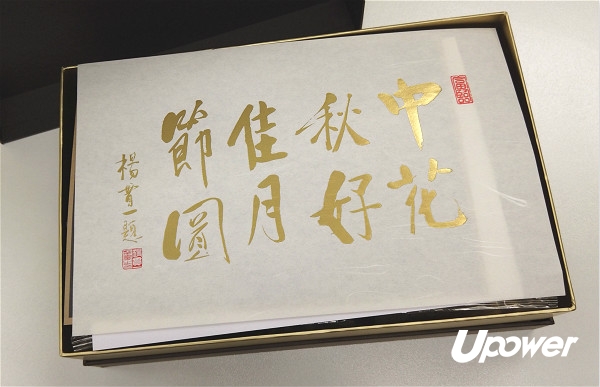 中秋佳節
花好月圓
楊貫一題
Upower